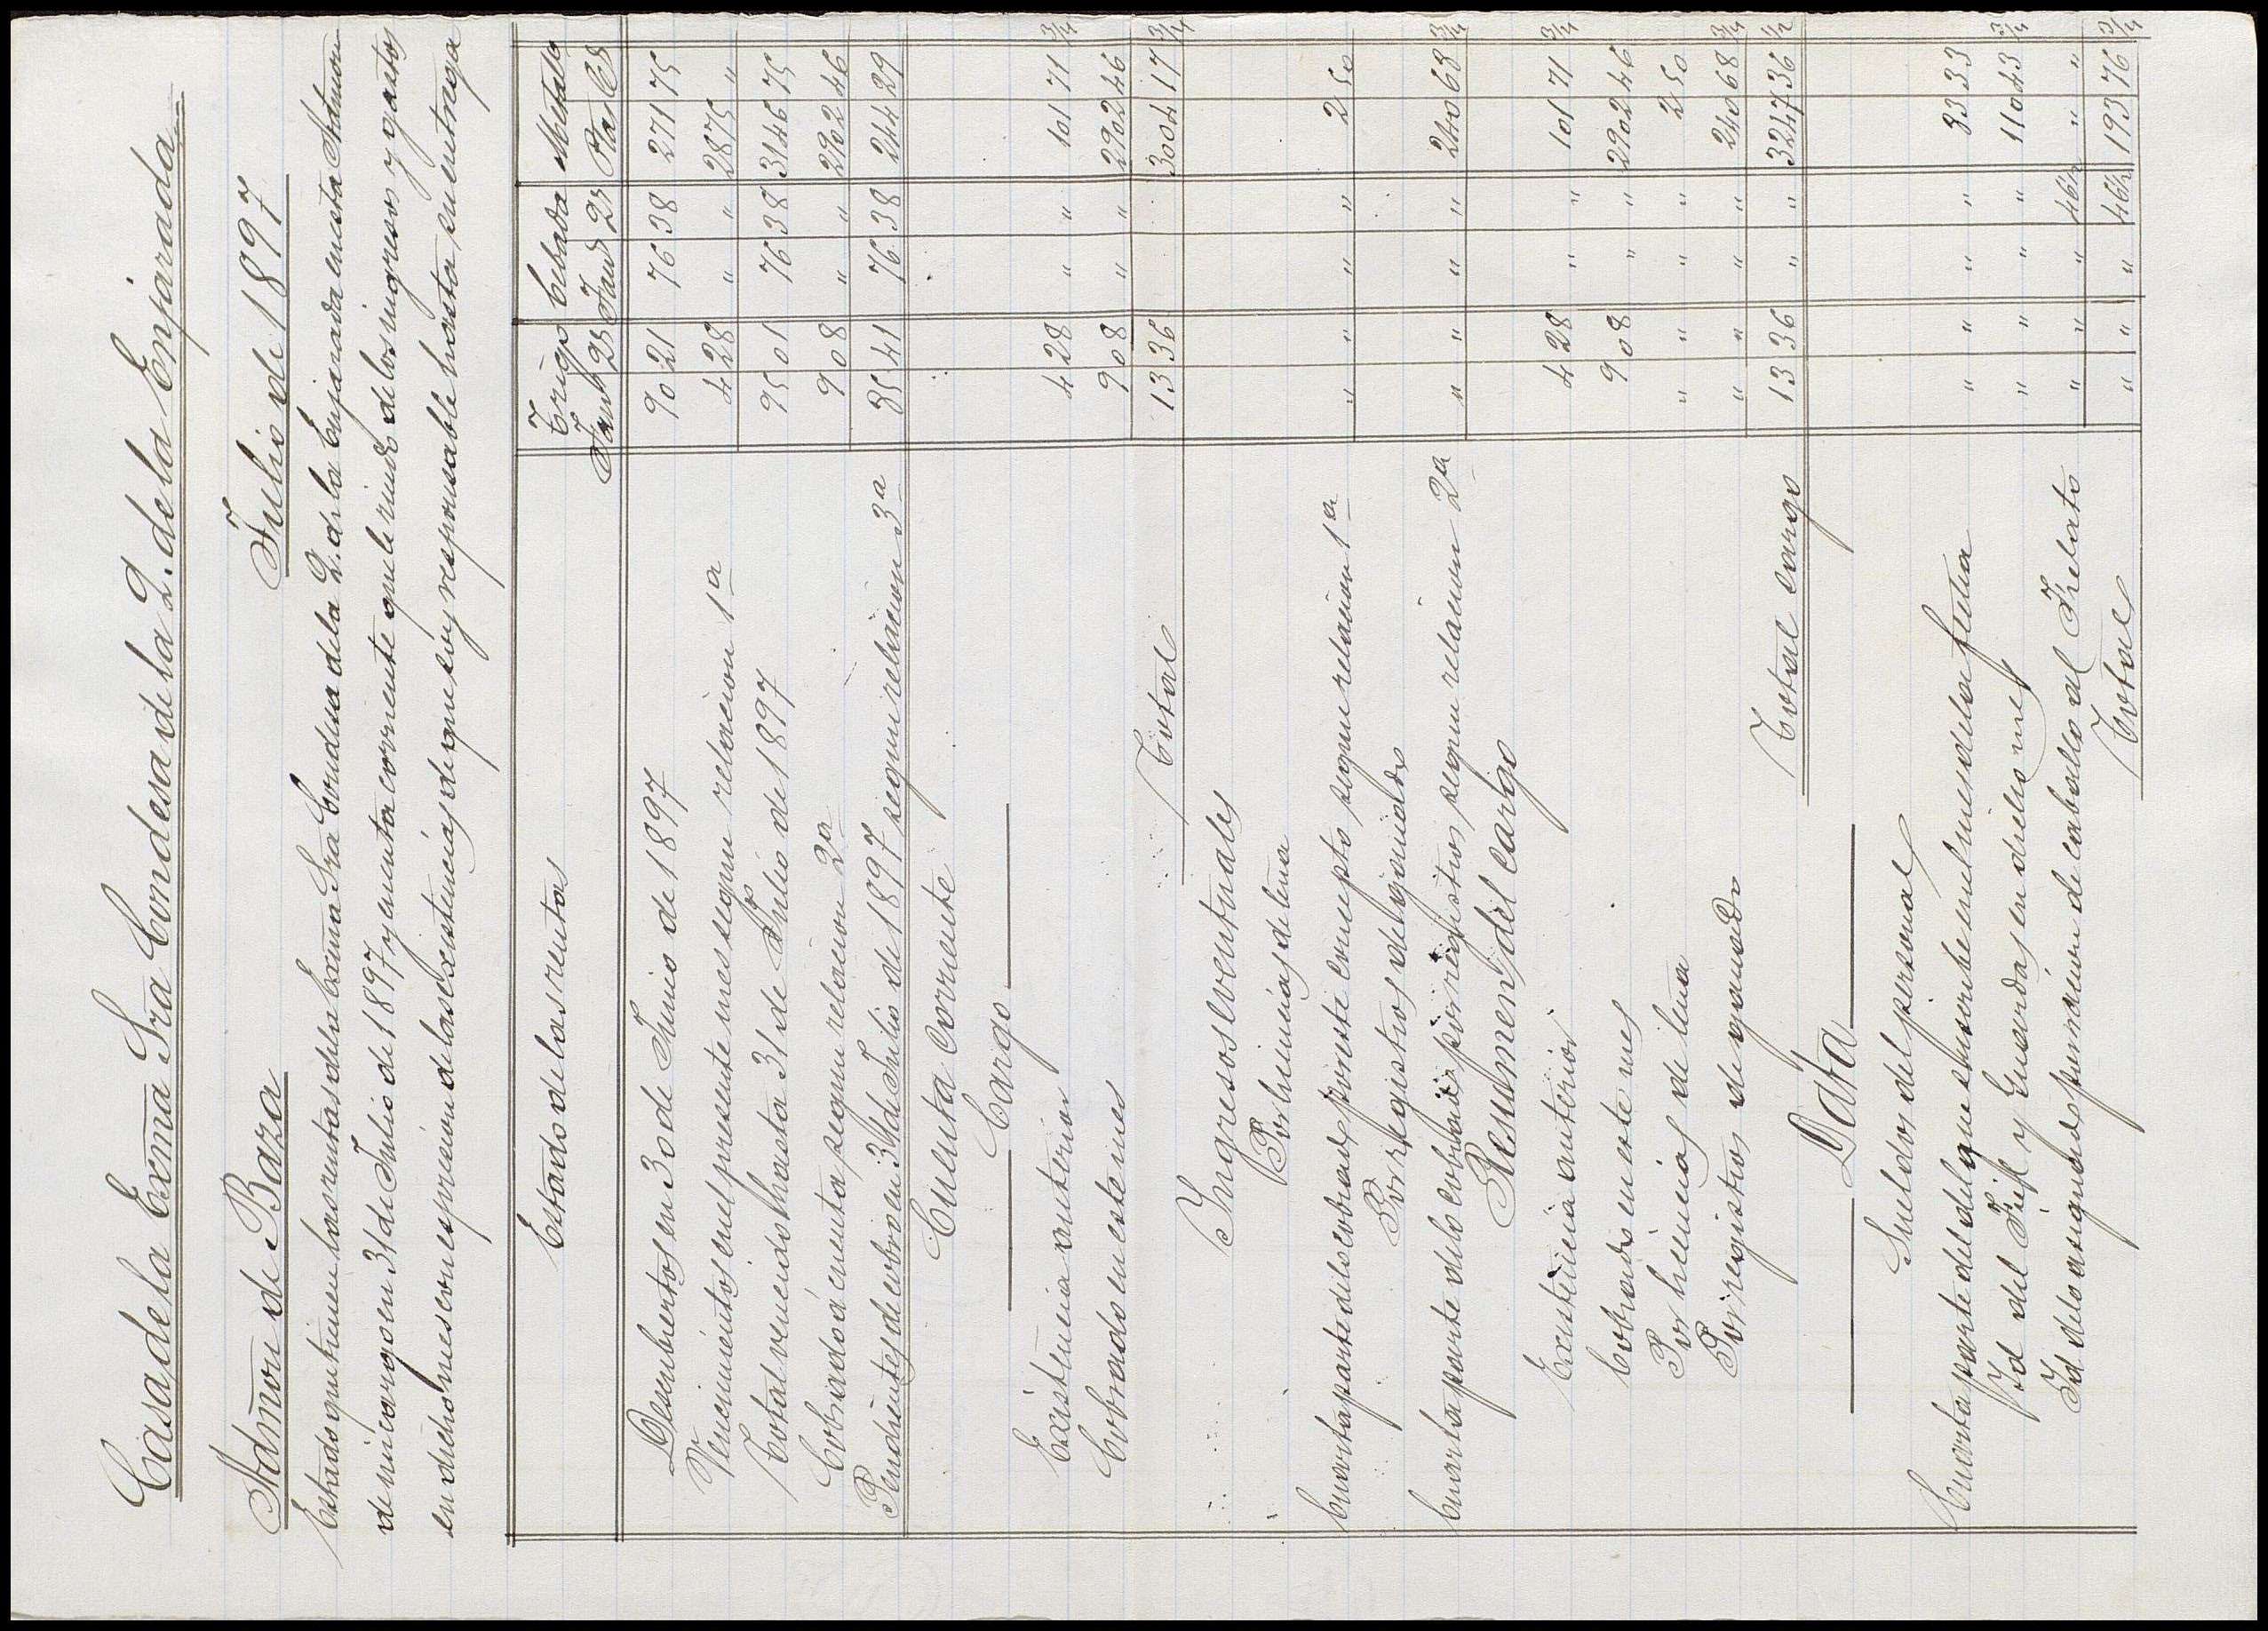 Casa de la Exma Sra Condesa de la Q. de la Enjarada
Admon de Baza Julio de 1897
Estado que tienen las rentas de la Exma Sra Condesa de la Q. de la Enjarada en esta Admon
de mi cargo en 31 de Julio de 1897 y cuenta corriente que le rindo de los ingresos y gastos
en dicho mes con espresion de las existencias de que soy responsable hasta su entrega
Estado de las rentas Trigo Cebada Metalico
Fans Cs Fans Cs Ptas Cs
Descubiertos en 30 de Junio de 1897 90 21 76 38 271 75
Vencimientos en el presente mes segun relacion 1a 4 28 " " 2875 "
Total vencido hasta 31 de Julio de 1897 95 01 76 38 3146 75
Cobrado á cuenta segun relacion 2a 9 08 " " 2902 46
Pendientes de cobro en 31 de Julio de 1897 segun relacion 3a 85 41 76 38 244 29
Cuenta Corriente
Cargo
Existencia anterior 4 28 " " 101 71 3/4
Cobrado en este mes 9 08 " " 2902 46
Total 13 36 3004 17 3/4
Ingresos eventuales
Por licencias de lena
Cuarta parte de lo cobrado por este concepto segun relacion 1a " " " " 2 50
Por registros de ganado
Cuarta parte de lo cobrado por registros segun relacion 2a " " " " 240 68 3/4
Resumen del Cargo
Existencia anterior 4 28 " " 101 71 3/4
Cobrado en este mes 9 08 " " 2902 46
Por licencias de lena " " " " 2 50
Por registros de ganado " " " " 240 68 3/4
Total cargo 13 36 " " 3247 36 1/2
Data
Sueldos del personal
Cuarta parte del del que suscribe en el mes de la fecha " " " " 83 33
Id del Fiel y Guardas en dicho mes " " " " 110 43 3/4
Id de lo asignado por racion de caballo al " " " 46 1/2 " "
Total " " " 46 1/2 193 76 3/4